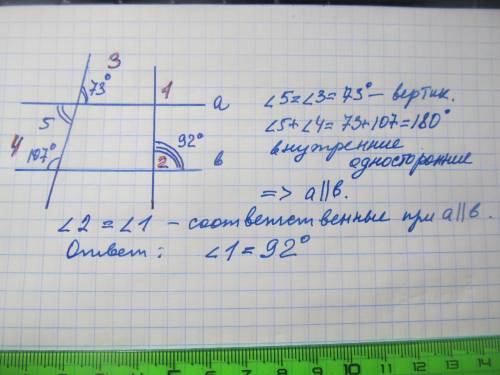 3
73°
1
a
5
4
107°
92°
2
в
∠5=∠3=73° – вертик.
∠5+∠4=73+107=180°
внутренние
односторонние
=> a||в.
∠2=∠1 – соответственные при a||в.
Ответ: ∠1=92°
1 2 3 4 5 6 7 8 9 10 11 12 13 14